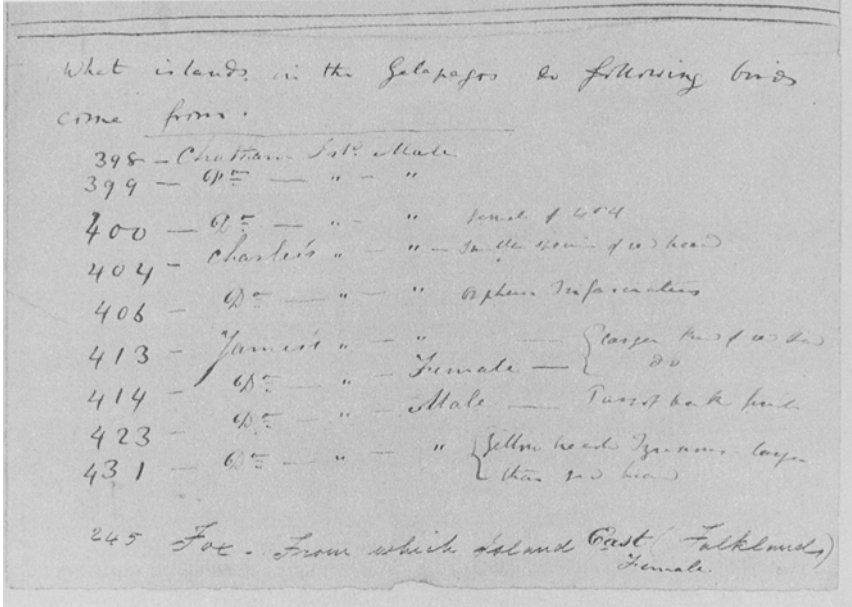 What islands in the Galapagos do following birds
come from.
398 - Chatham Isd. Male
399 - Do — " - "
400 - Do — " - " female of 404
404 - Charles's " - " - Smaller of red head
406 - Do — " - " Orpheus Trifasciatus
413 - James's " - " — { larger kind of red head
414 - Do - " - Female — do
423 - Do - " - Male —
431 - Do — " - " { Yellow head Tyrannus larger
than red head
245 Fox - From which island East (Falklands)
Female.